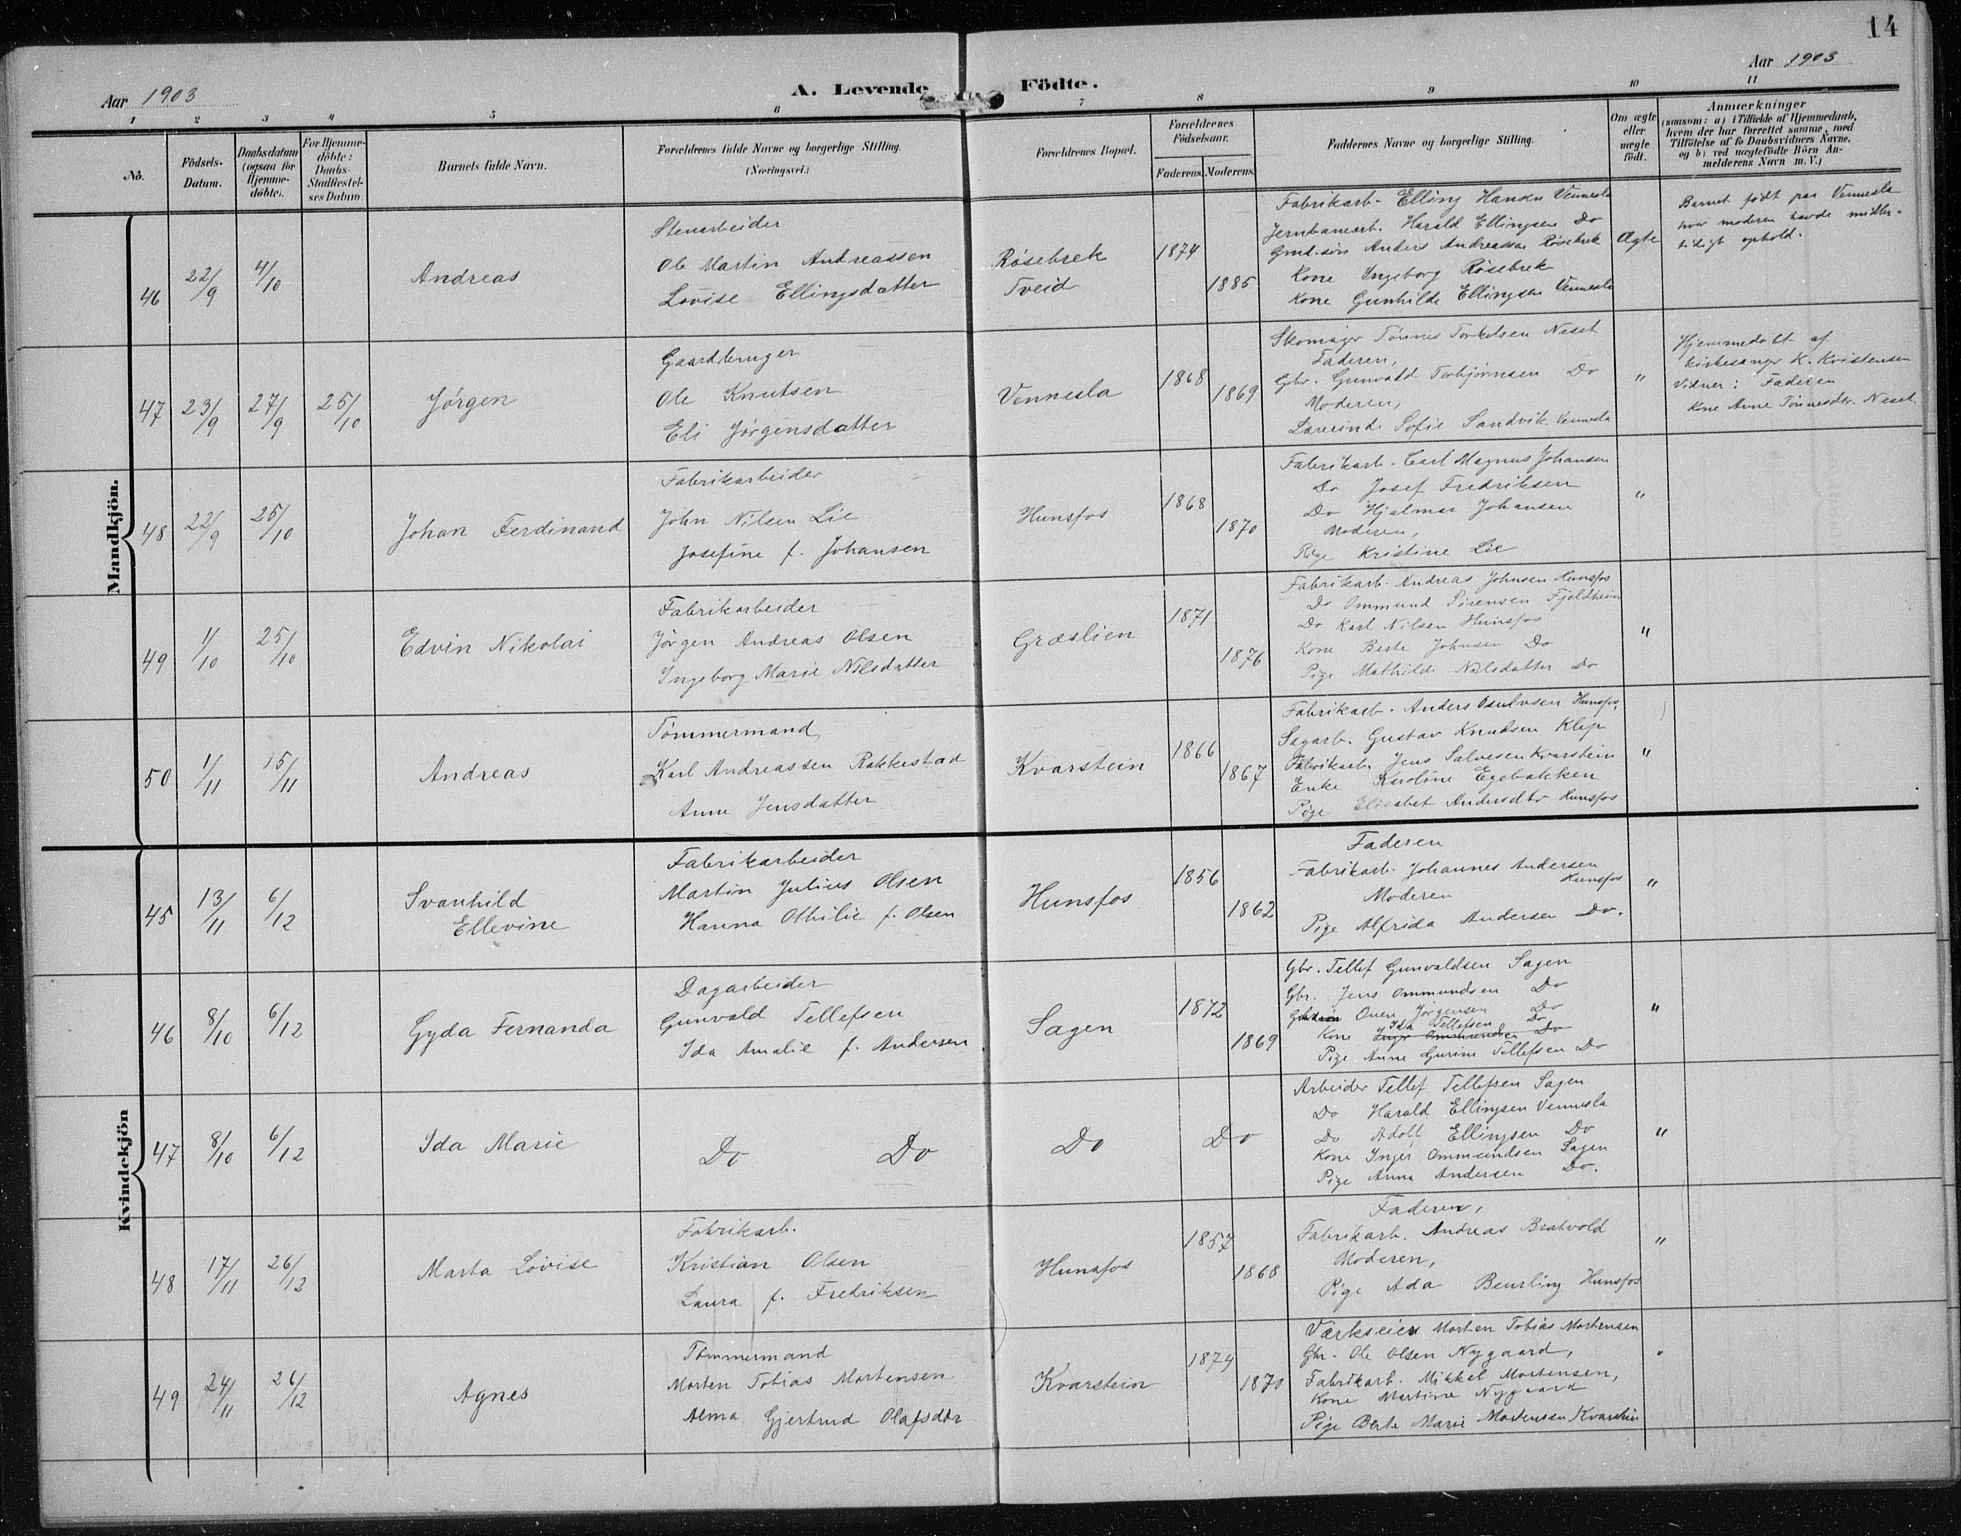 14
Aar 1903
A. Levende Födte.
Aar 1903
1 2 3 4 5 6 7 8 9 10 11
No.
Födsels-Datum.
Daabsdatum (ogsaa for Hjemmedöbte).
For Hjemmedöbte: Daabs-Stadfæstelses Datum.
Barnets fulde Navn.
Forældrenes fulde Navne og borgerlige Stilling. (Næringsvei.)
Forældrenes Bopæl.
Forældrenes Födselsaar.
Faderens. Moderens.
Faddernes Navne og borgerlige Stilling.
Om ægte eller uægte födt.
Anmærkninger
(saasom: a) i Tilfælde af Hjemmedaab,
hvem der har forrettet samme, med
Tilföielse af to Daabsvidners Navne,
og b) ved uægtefödte Börn Anmelderens Navn m. V.)
Mandkjön.
46 22/9 4/10
Andreas
Stenarbeider
Ole Martin Andreassen
Lovise Ellingsdatter
Røsebrek
Tveid
1874
1885
Fabrikarb. Elling Hansen Vennesla
Jernbanearb. Harald Ellingsen Do
Gmd.søn Anders Andreassen Røsebrek
Kone Ingeborg Røsebrek
Kone Gunhilde Ellingsen Vennesla
Ægte
Barnet født paa Vennesla
hvor moderen havde midler-
tidigt ophold.
47 23/9 27/9 25/10
Jørgen
Gaardbruger
Ole Knutsen
Eli Jørgensdatter
Vennesla
1868
1869
Skomager Tønnes Torkelsen Neset
Faderen,
Gbr. Gunvald Torbjørnsen Do
Moderen,
Lærerinde Sofie Sandvik Vennesla
"
Hjemmedøbt af
kirkesanger K. Kristensen
Vidner: Faderen
Kone Anne Tønnesdtr. Neset.
48 22/9 25/10
Johan Ferdinand
Fabrikarbeider
John Nilsen Lie
Josefine f. Johansen
Hunsfos
1868
1870
Fabrikarb. Carl Magnus Johansen
Do Josef Fredriksen
Do Hjalmar Johansen
Moderen,
Pige Kristine Lie
"
49 1/10 25/10
Edvin Nikolai
Fabrikarbeider
Jørgen Andreas Olsen
Ingeborg Marie Nilsdatter
Græslien
1871
1876
Fabrikarb. Andreas Johnsen Hunsfos
Do Ommund Sørensen Fjeldheim
Do Karl Nilsen Hunsfos
Kone Berte Johnsen Do
Pige Mathilde Nilsdatter Do
"
50 1/11 15/11
Andreas
Tømmermand
Karl Andreassen Rakkestad
Anne Jensdatter
Kvarstein
1866
1867
Fabrikarb. Anders Hunsfos,
Sagarb. Gustav Knudsen Klep
Fabrikarb. Jens Salvesen Kvarstein
Enke Karoline Egebakken
Pige Elisabet Andersdtr Hunsfos
"
Kvindekjön
45 13/11 6/12
Svanhild
Ellevine
Fabrikarbeider
Martin Julius Olsen
Hanna Othilie f. Olsen
Hunsfos
1856
1862
Faderen
Fabrikarb. Johannes Andersen
Hunsfos
Moderen
Pige Alfrida Andersen Do.
"
46 8/10 6/12
Gyda Fernanda
Dagarbeider
Gunvald Tellefsen
Ida Amalie f. Andersen
Sagen
1872
1869
Gbr. Tellef Gunvaldsen Sagen
Gbr. Jens Ommundsen Do
Oven Jörgensen Do
Ida Tellefsen Do
Kone Inger Ommundsen Do
Pige Anne Gurine Tellefsen Do
"
47 8/10 6/12
Ida Marie
Do Do
Do
Do
Arbeider Tellef Tellefsen Sagen
Do Harald Ellingsen Vennesla
Do Adolf Ellingsen Do
Kone Inger Ommundsen Sagen
Pige Anna Andersen Do.
"
48 17/11 26/12
Marta Lovise
Fabrikarb.
Kristian Olsen
Laura f. Fredriksen
Hunsfos
1857
1868
Faderen,
Fabrikarb. Andreas Bratvold
Moderen,
Pige Ada Beurling Hunsfos
"
49 24/11 26/12
Agnes
Tømmermand
Morten Tobias Mortensen
Alma Gjertrud Olafsdtr
Kvarstein
1874
1870
Værkseier Morten Tobias Mortensen
Gbr. Ole Olsen Nygaard,
Fabrikarb. Mikkel Mortensen,
Kone Martine Nygaard
Pige Berte Marie Mortensen Kvarstein
"